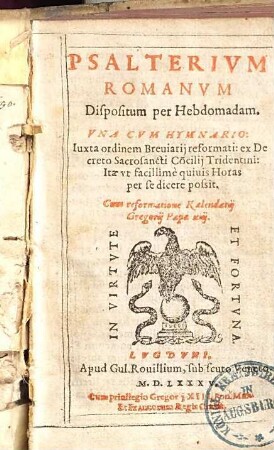 PSALTERIVM
ROMANVM
Dispositum per Hebdomadam.
VNA CVM HYMNARIO:
Iuxta ordinem Breuiarij reformati: ex De
creto Sacrosancti Cõcilij Tridentini:
Ita vt facillimè quiuis Horas
per se dicere possit.
Cum reformatione Kalendarij
Gregorij Papæ xiij.
IN VIRTVTE
ET FORTVNA
LVGDVNI,
Apud Gul. Rouillium, sub scuto Veneto.
M. D. LXXXV
Cum priuilegio Gregorij XIII. Pon. Max.
Regis
IN
AUGSBURG